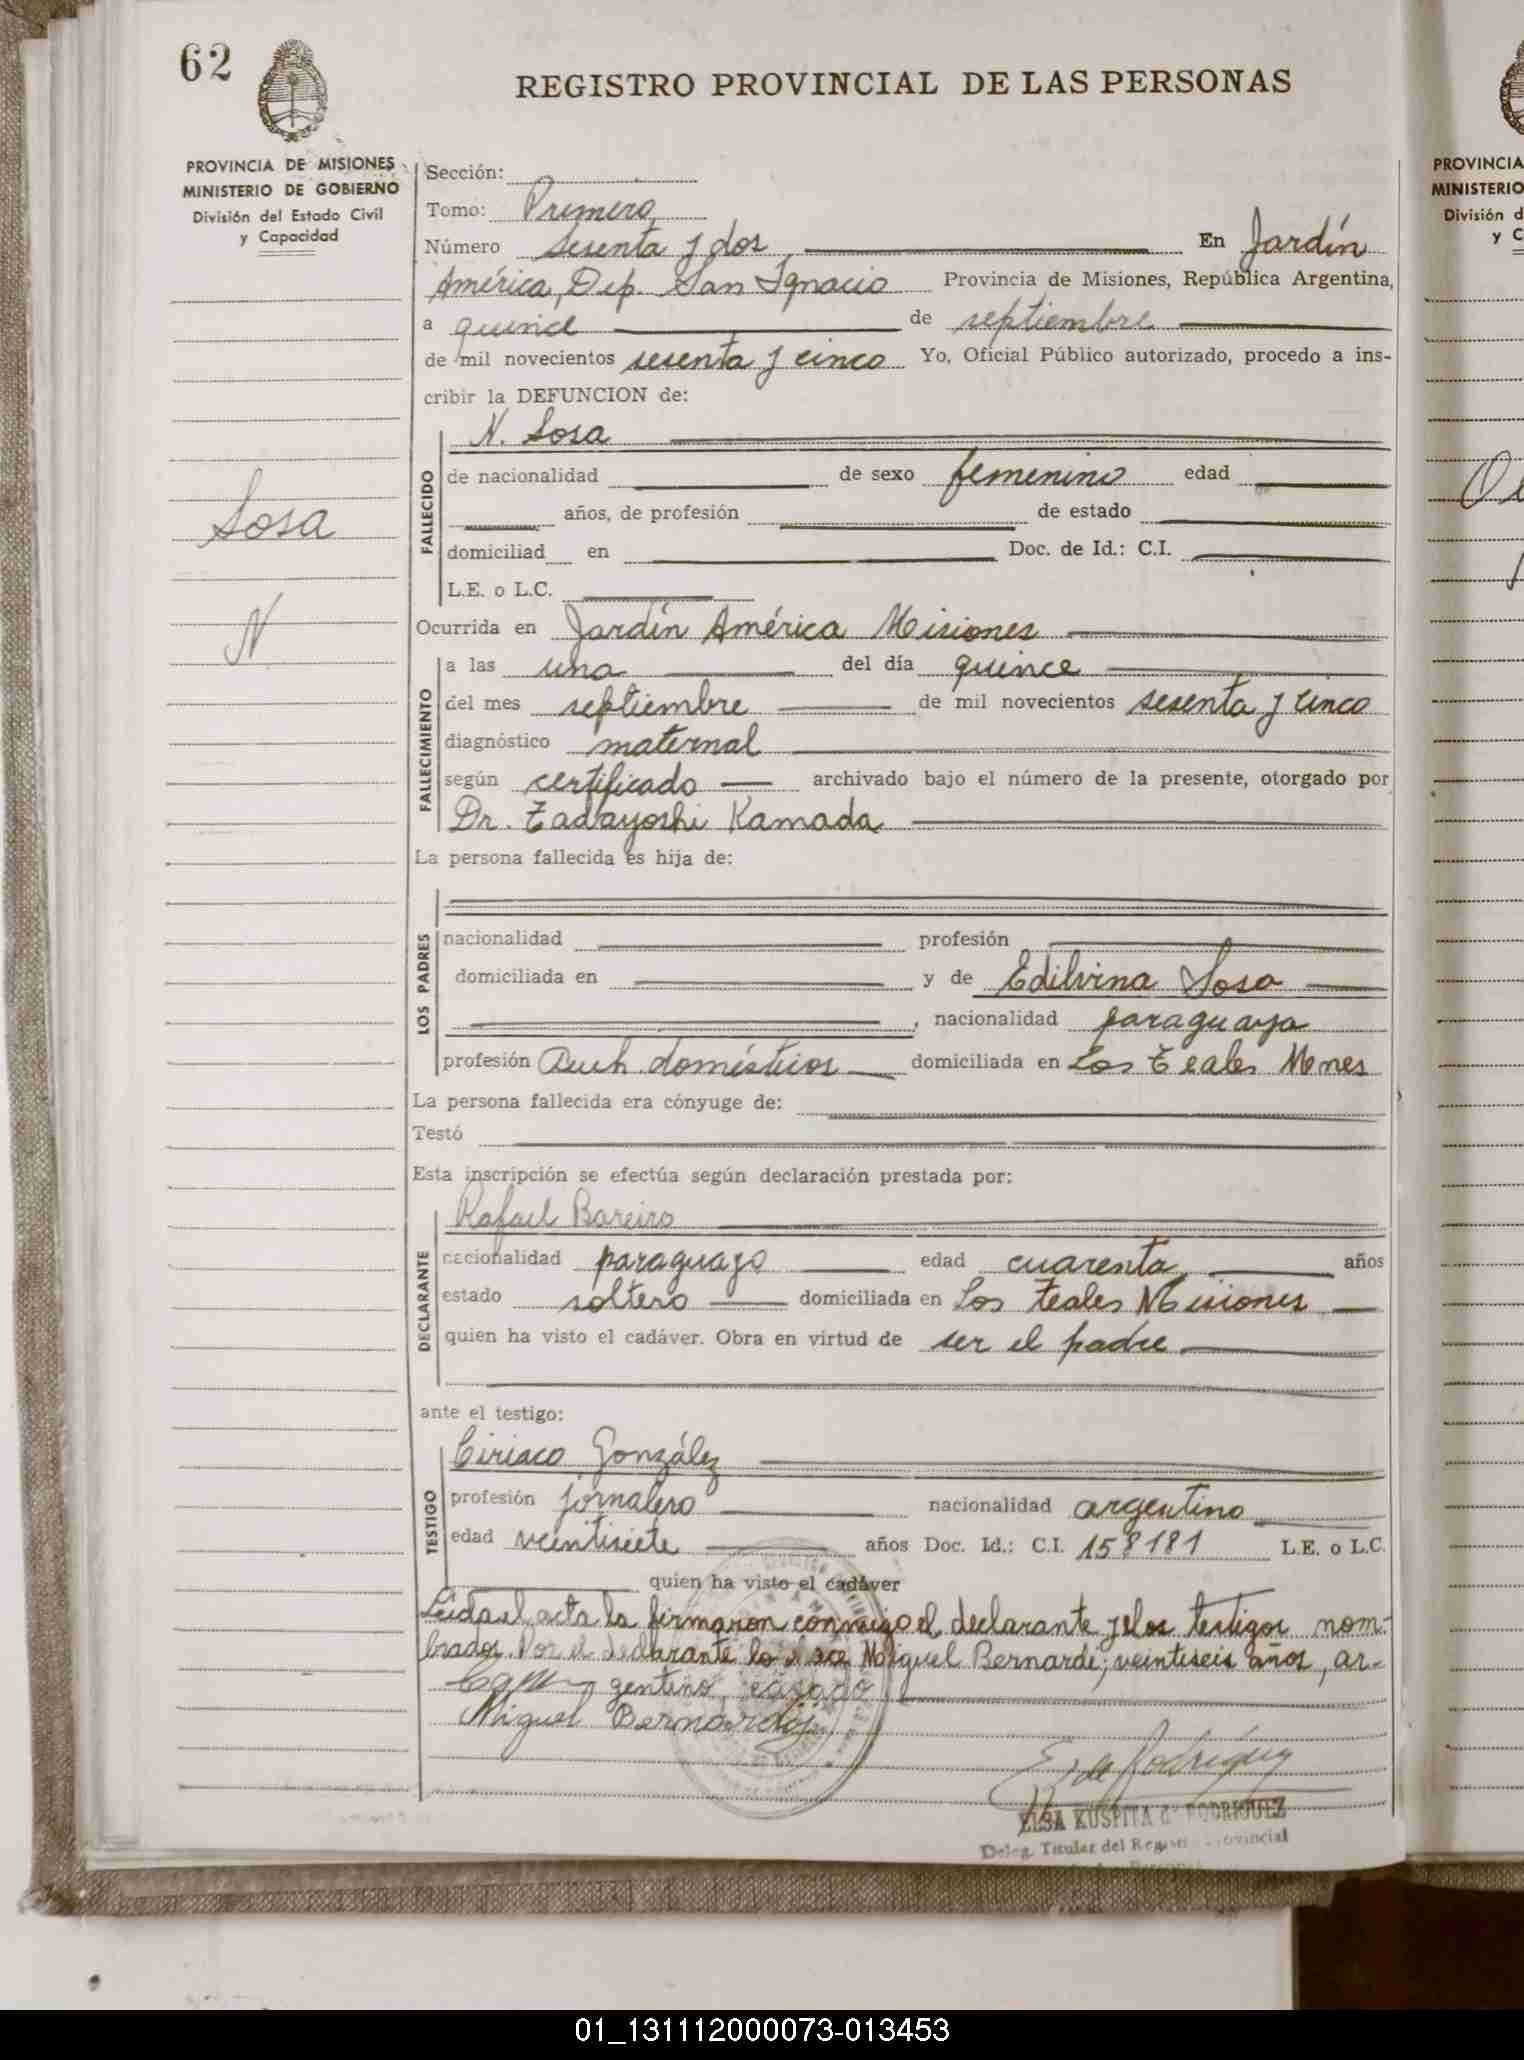 62
REGISTRO PROVINCIAL DE LAS PERSONAS
PROVINCIA DE MISIONES
MINISTERIO DE GOBIERNO
División del Estado Civil
y Capacidad
Sosa
N
Sección:
Tomo: Primero
Número sesenta y dos En Jardín
América, Dep. San Ignacio Provincia de Misiones, República Argentina,
a quince de septiembre
de mil novecientos sesenta y cinco Yo, Oficial Público autorizado, procedo a ins-
cribir la DEFUNCION de:
FALLECIDO
N. Sosa
de nacionalidad de sexo femenino edad
años, de profesión de estado
domiciliad en Doc. de Id.: C.I.
L.E. o L.C.
Ocurrida en Jardín América Misiones
FALLECIMIENTO
a las una del día quince
del mes septiembre de mil novecientos sesenta y cinco
diagnóstico maternal
según certificado archivado bajo el número de la presente, otorgado por
Dr. Tadayoshi Kamada
La persona fallecida es hija de:
LOS PADRES
nacionalidad profesión
domiciliada en y de Edilvina Sosa
, nacionalidad paraguaya
profesión domésticos domiciliada en Los Teales Mnes
La persona fallecida era cónyuge de:
Testó
Esta inscripción se efectúa según declaración prestada por:
DECLARANTE
Rafael Bareiro
nacionalidad paraguayo edad cuarenta años
estado soltero domiciliada en Los Teales Misiones
quien ha visto el cadáver. Obra en virtud de ser el padre
ante el testigo:
TESTIGO
Ciriaco González
profesión jornalero nacionalidad argentino
edad veintisiete años Doc. Id.: C.I. 158181 L.E. o L.C.
quien ha visto el cadáver
Leida el acta la firmaron conmigo el declarante y los testigos nom-
brados. Por el declarante lo hace Miguel Bernardi, veintiseis años, ar-
gentino, casado
Miguel Bernardi
E. de Rodríguez
ELSA KUSPITA de RODRIGUEZ
Deleg. Titular del Registro Provincial
PROVINCIA
MINISTERIO
División d
y C
01_131112000073-013453